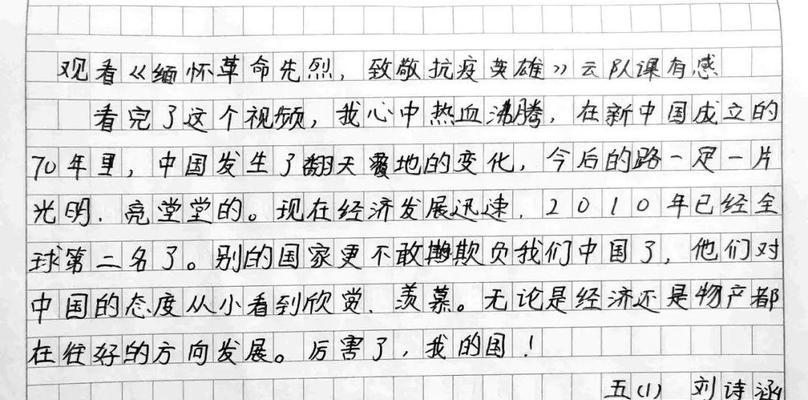 观看《缅怀革命先烈，致敬抗疫英雄》云队课有感
看完了这个视频，我心中热血沸腾，在新中国成立的
70年里，中国发生了翻天覆地的变化，今后的路一定一片
光明、亮堂堂的。现在经济发展迅速，2010年已经全
球第二名了。别的国家更不敢欺负我们中国了，他们对
中国的态度从小看到欣赏、羡慕。无论是经济还是物产都
在往好的方向发展。厉害了，我的国！
五(1) 刘诗涵